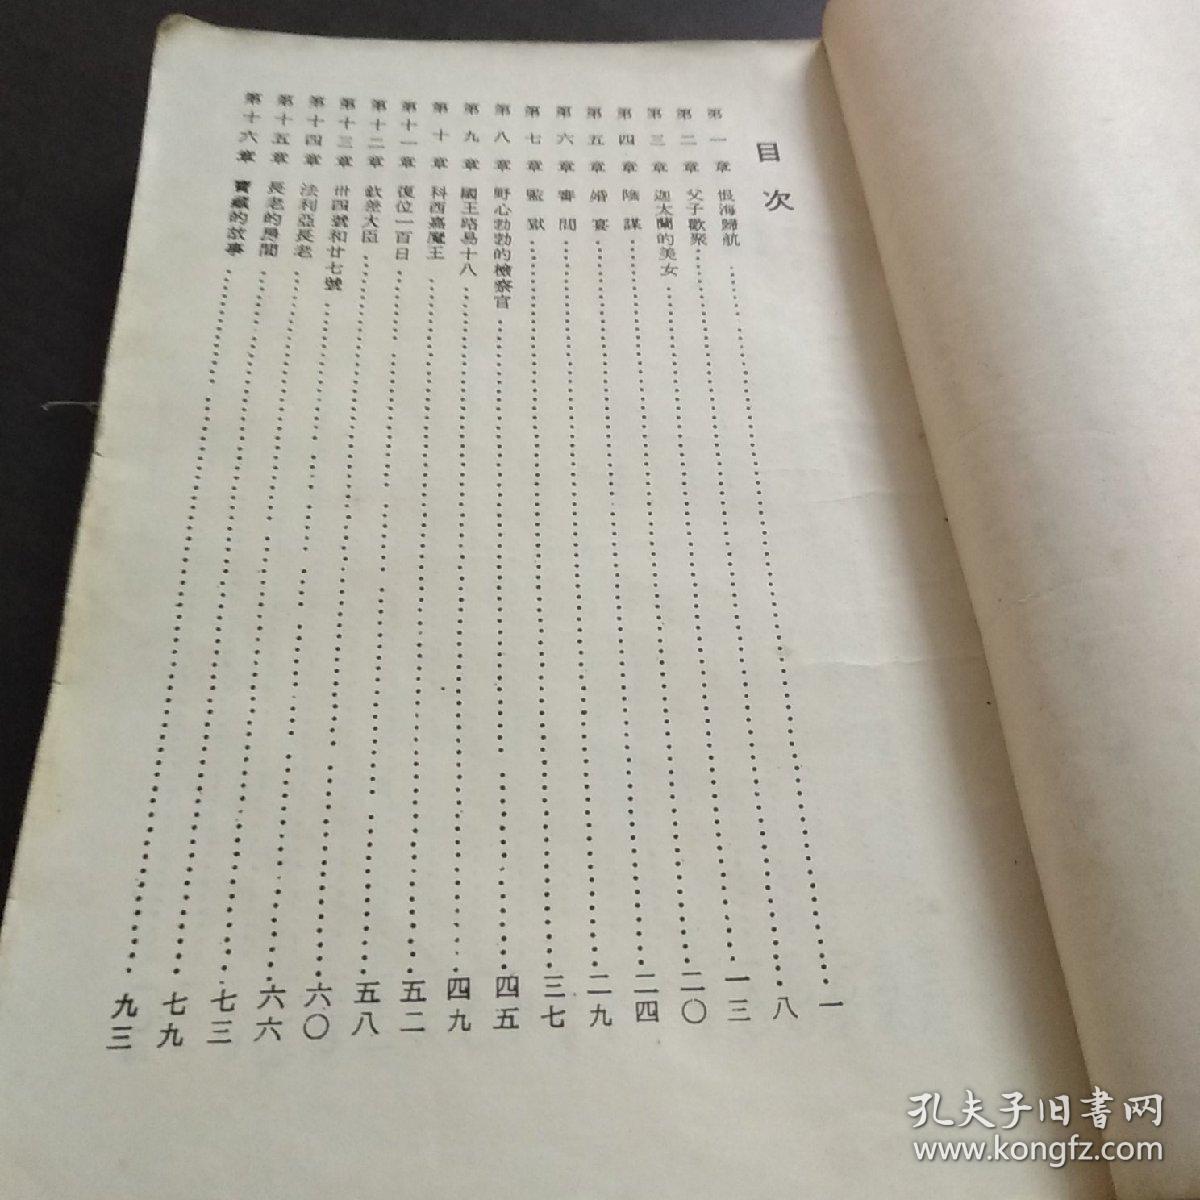 目次
第一章 恨海歸航 一
第二章 父子歡聚 八
第三章 迦太蘭的美女 一三
第四章 陰謀 二〇
第五章 婚宴 二四
第六章 審問 二九
第七章 監獄 三七
第八章 野心勃勃的檢察官 四五
第九章 國王路易十八 四九
第十章 科西嘉魔王 五二
第十一章 復位一百日 五八
第十二章 欽差大臣 六〇
第十三章 卅四號和廿七號 六六
第十四章 法利亞長老 七三
第十五章 長老的房間 七九
第十六章 寶藏的故事 九三
孔夫子旧书网
www.kongfz.com